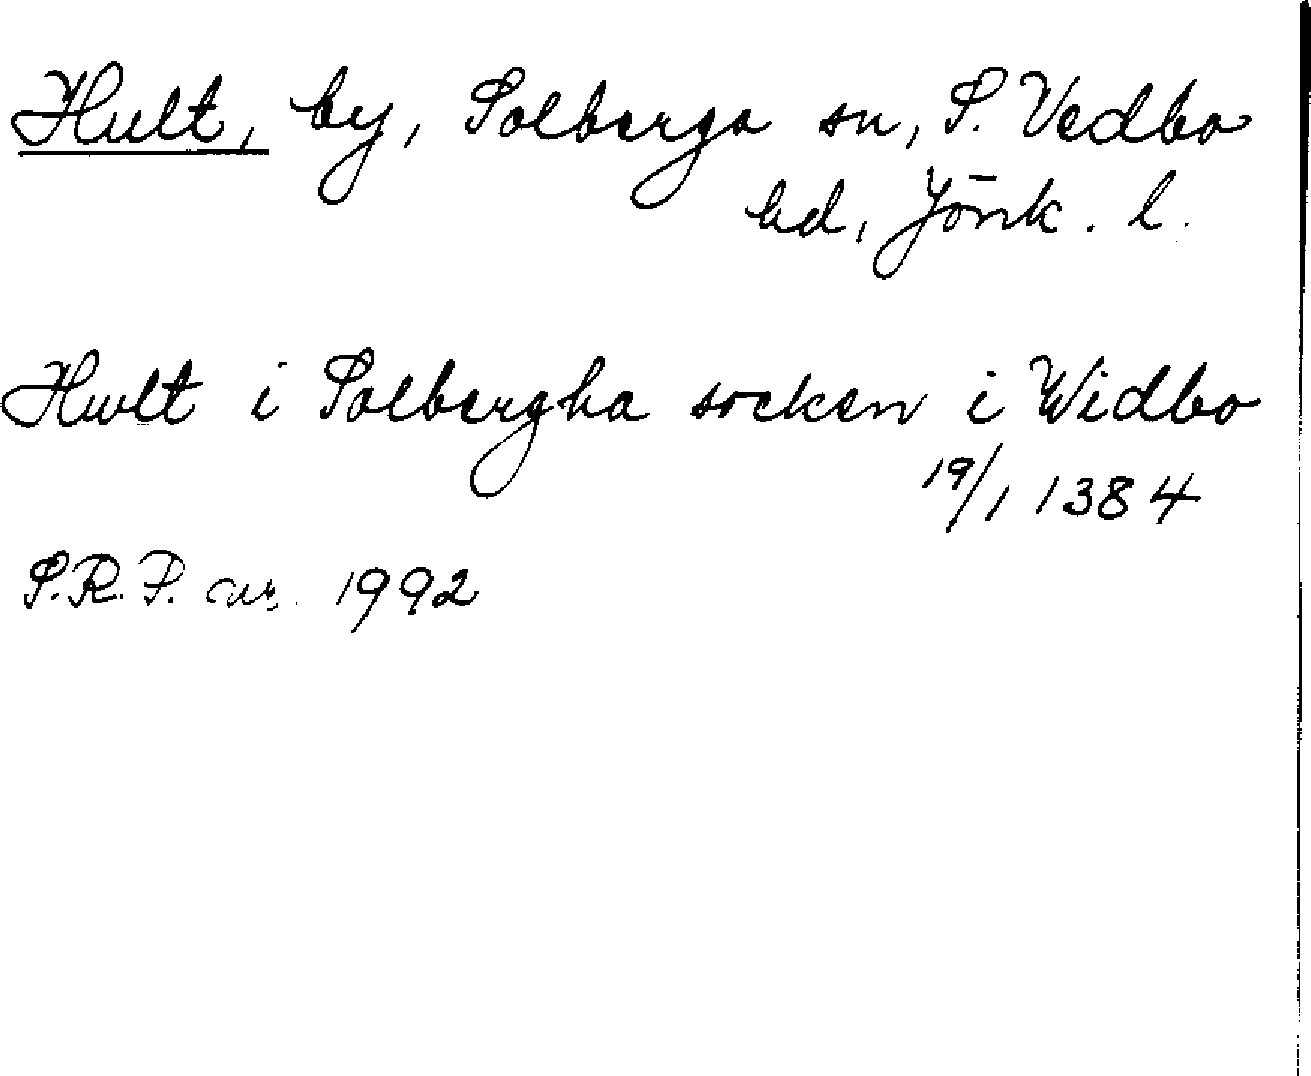 Hult, by, Solberga sn, S. Vedbo
hd, Jönk. l.
Hwlt i Solbergha socken i Widbo
19/1 1384
S.R.P. nr. 1992